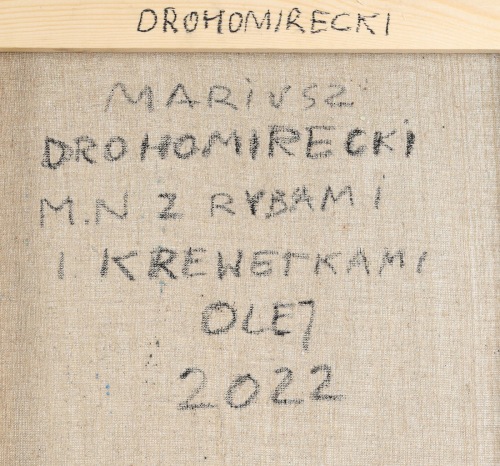 DROHOMIRECKI
MARIUSZ
DROHOMIRECKI
M.N Z RYBAMI
I KREWETKAMI
OLEJ
2022